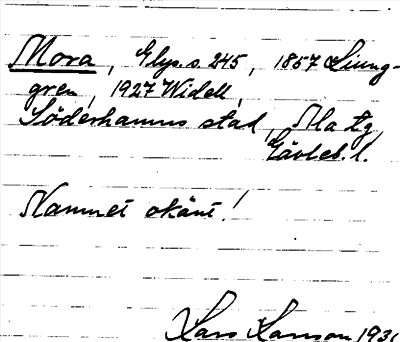 Mora, Glys. s. 245, 1857 Ljung-
gren, 1927 Widell,
Söderhamns stad, Ala tg,
Gävleb. l.
Namnet okänt!
Lars Larsson 193